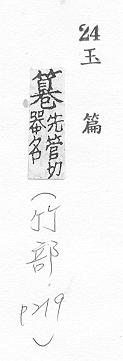 24 玉篇
先管切
器名
(竹部. p219)